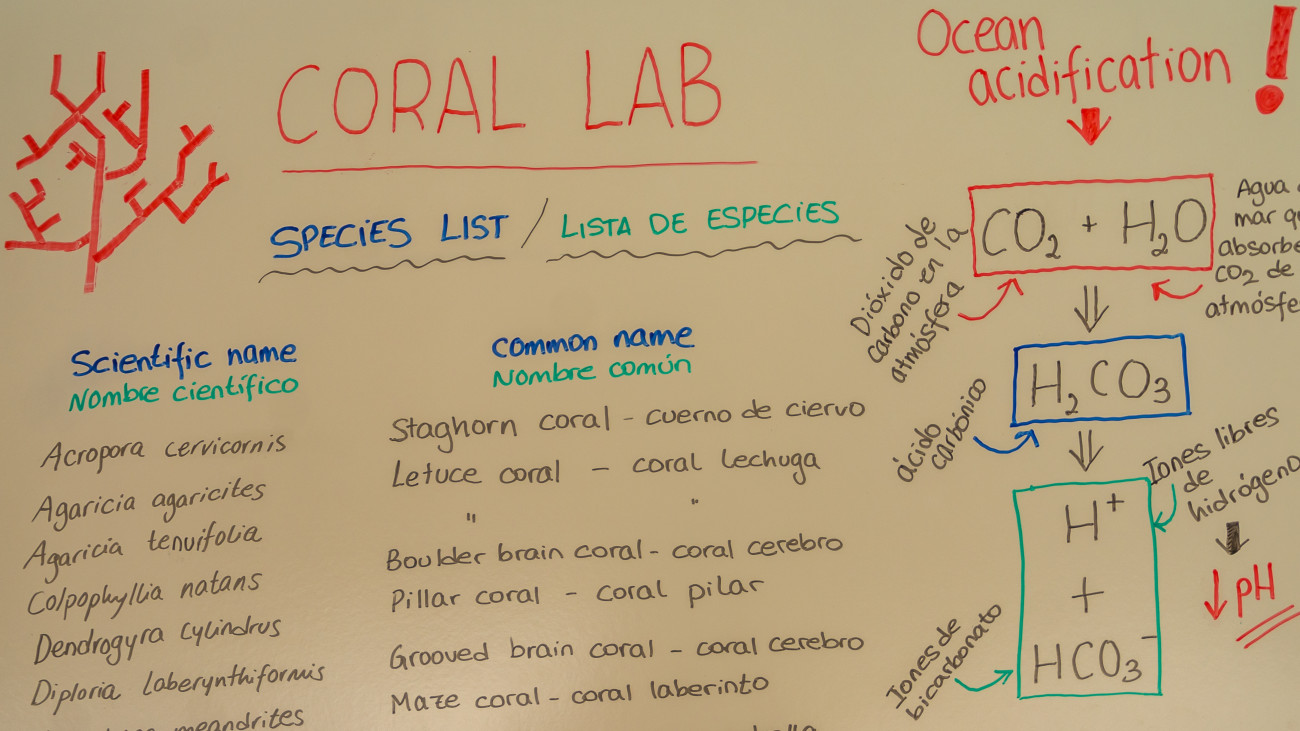 CORAL LAB
SPECIES LIST / LISTA DE ESPECIES
Scientific name
Nombre científico
Acropora cervicornis
Agaricia agaricites
Agaricia tenuifolia
Colpophyllia natans
Dendrogyra cylindrus
Diploria laberynthiformis
meandrites
common name
Nombre común
Staghorn coral - cuerno de ciervo
Letuce coral - coral lechuga
" "
Boulder brain coral - coral cerebro
Pillar coral - coral pilar
Grooved brain coral - coral cerebro
Maze coral - coral laberinto
Ocean
acidification !
CO₂ + H₂O
Dióxido de
Carbono en la
atmósfera
Agua
mar
absorbe
CO₂ de
H₂CO₃
ácido
carbónico
H⁺
+
HCO₃⁻
Iones libres
de
hidrógeno
↓ pH
Iones de
bicarbonato